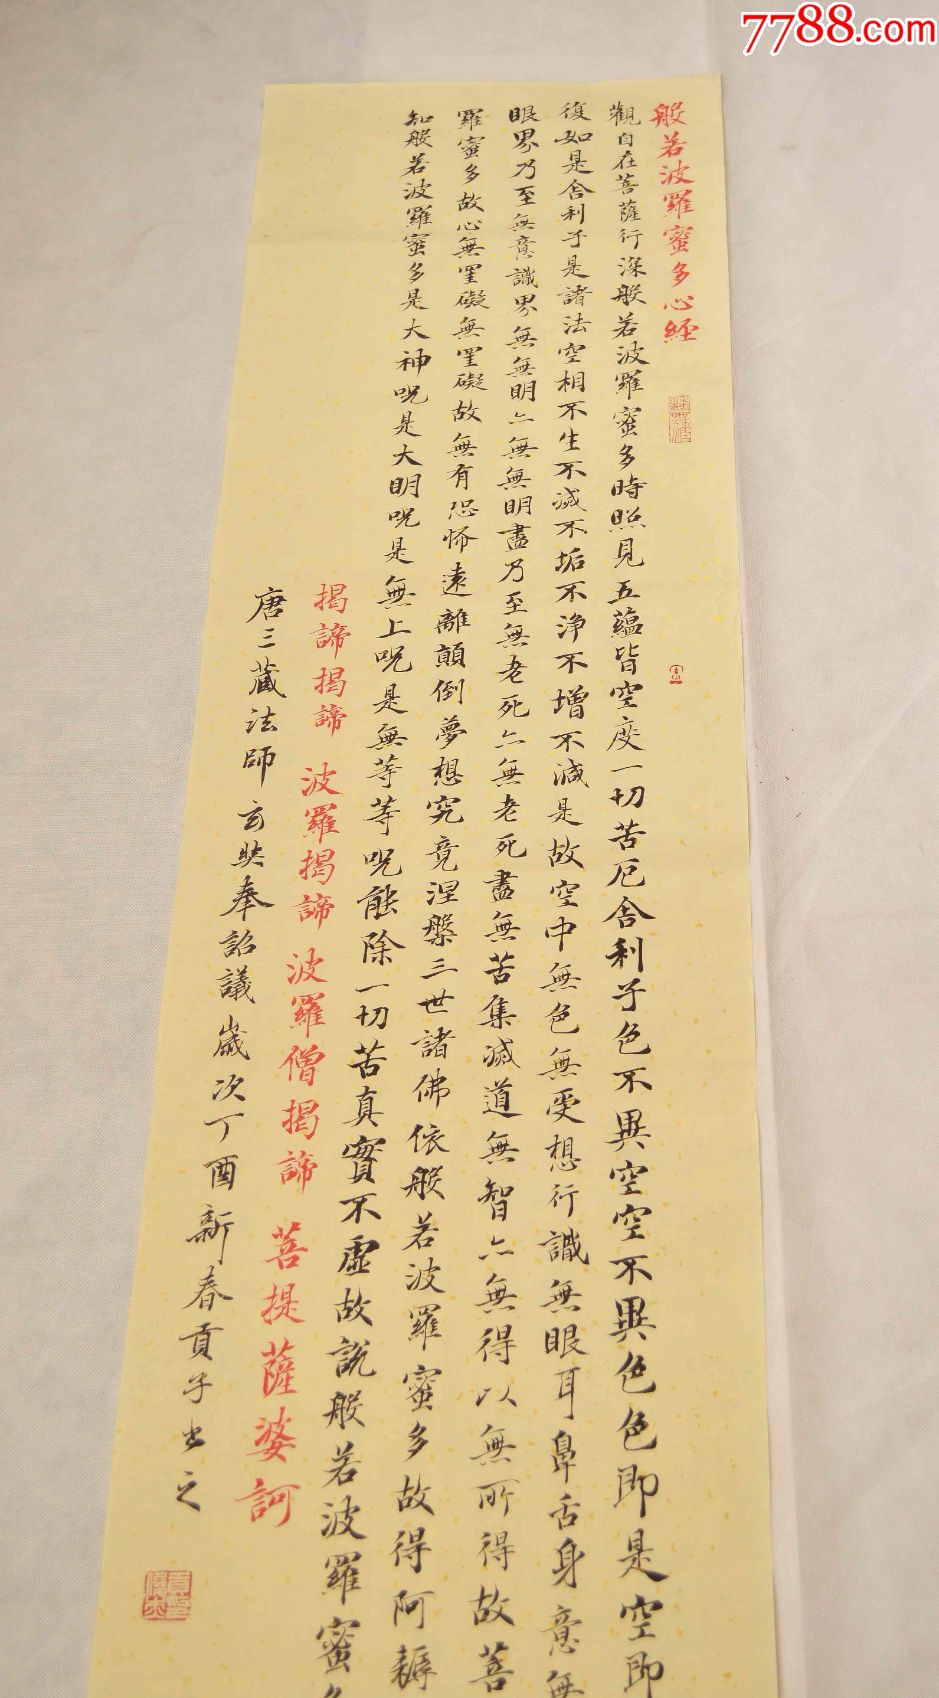 7788.com
般若波羅蜜多心經
觀自在菩薩行深般若波羅蜜多時照見五蘊皆空度一切苦厄舍利子色不異空空不異色色即是空即
復如是舍利子是諸法空相不生不滅不垢不淨不增不減是故空中無色無受想行識無眼耳鼻舌身意無
眼界乃至無意識界無無明亦無無明盡乃至無老死亦無老死盡無苦集滅道無智亦無得以無所得故菩
羅蜜多故心無罣礙無罣礙故無有恐怖遠離顛倒夢想究竟涅槃三世諸佛依般若波羅蜜多故得阿耨
知般若波羅蜜多是大神呪是大明呪是無上呪是無等等呪能除一切苦真實不虛故說般若波羅蜜多
揭諦揭諦 波羅揭諦 波羅僧揭諦 菩提薩婆訶
唐三藏法師玄奘奉詔議歲次丁酉新春貢子书之